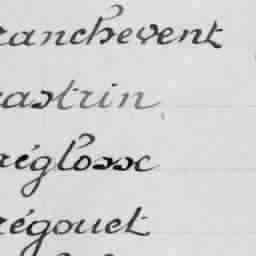 ranchevent
rastrin
réglosse
régouet